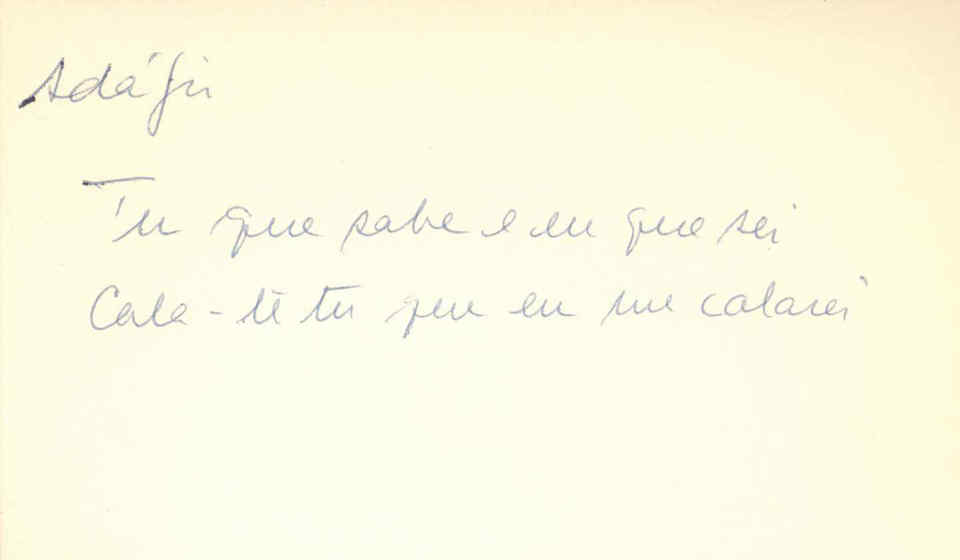 Adágio
Tu que sabe e eu que sei
Cala-te tu que eu me calarei